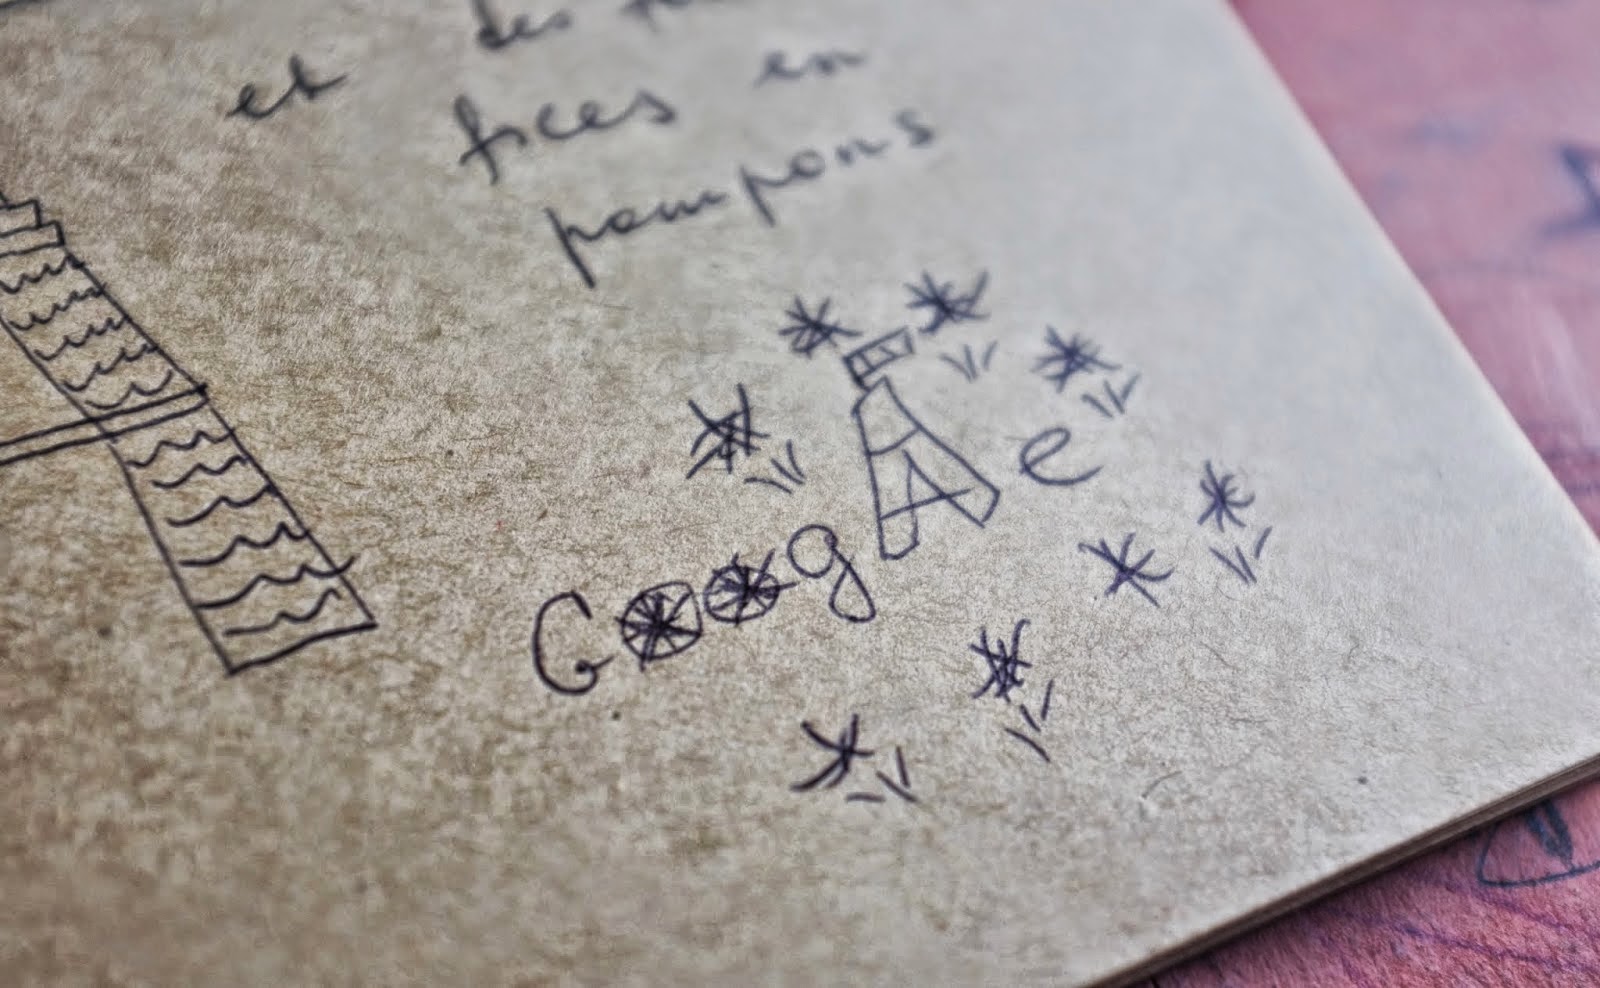 et des
fices en
pompons
Google